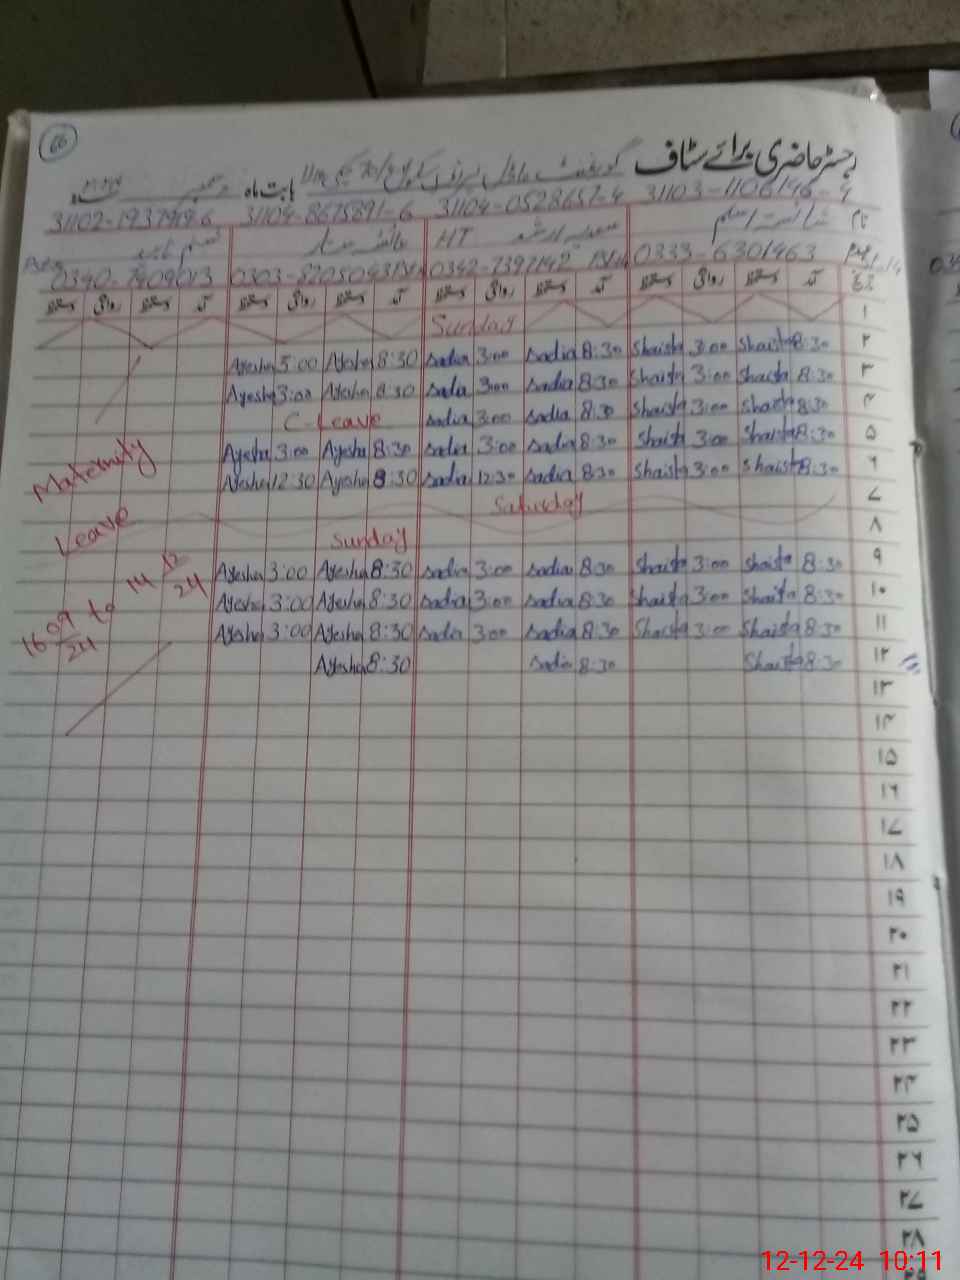 66
رجسٹر حاضری برائے سٹاف گورنمنٹ ماڈل پرائمری سکول
بابت ماہ دسمبر
31103-1106146-4 31104-0528657-4 31104-8675891-6
نام شائستہ اسلم سعدیہ ارشد HT عائشہ ستار
0333-6301463 0342-7397142 0340-7409013
آمد دستخط روانگی دستخط آمد دستخط روانگی دستخط آمد دستخط روانگی دستخط آمد دستخط روانگی دستخط
۱ Sunday
Ayesha 3:00 Ayesha 8:30 Sadia 3:00 Sadia 8:30 Shaista 3:00 Shaista 8:30 ۲
Ayesha 3:00 Ayesha 8:30 Sadia 3:00 Sadia 8:30 Shaista 3:00 Shaista 8:30 ۳
C-Leave Sadia 3:00 Sadia 8:30 Shaista 3:00 Shaista 8:30 ۴
Ayesha 3:00 Ayesha 8:30 Sadia 3:00 Sadia 8:30 Shaista 3:00 Shaista 8:30 ۵
Ayesha 12:30 Ayesha 8:30 Sadia 12:30 Sadia 8:30 Shaista 3:00 Shaista 8:30 ۶
Saturday ۷
Sunday ۸
Ayesha 3:00 Ayesha 8:30 Sadia 3:00 Sadia 8:30 Shaista 3:00 Shaista 8:30 ۹
Ayesha 3:00 Ayesha 8:30 Sadia 3:00 Sadia 8:30 Shaista 3:00 Shaista 8:30 ۱۰
Ayesha 3:00 Ayesha 8:30 Sadia 3:00 Sadia 8:30 Shaista 3:00 Shaista 8:30 ۱۱
Ayesha 8:30 Sadia 8:30 Shaista 8:30 ۱۲
Maternity
Leave
16 09/24 to 14 12/24
۱۳
۱۴
۱۵
۱۶
۱۷
۱۸
۱۹
۲۰
۲۱
۲۲
۲۳
۲۴
۲۵
۲۶
۲۷
۲۸
12-12-24 10:11